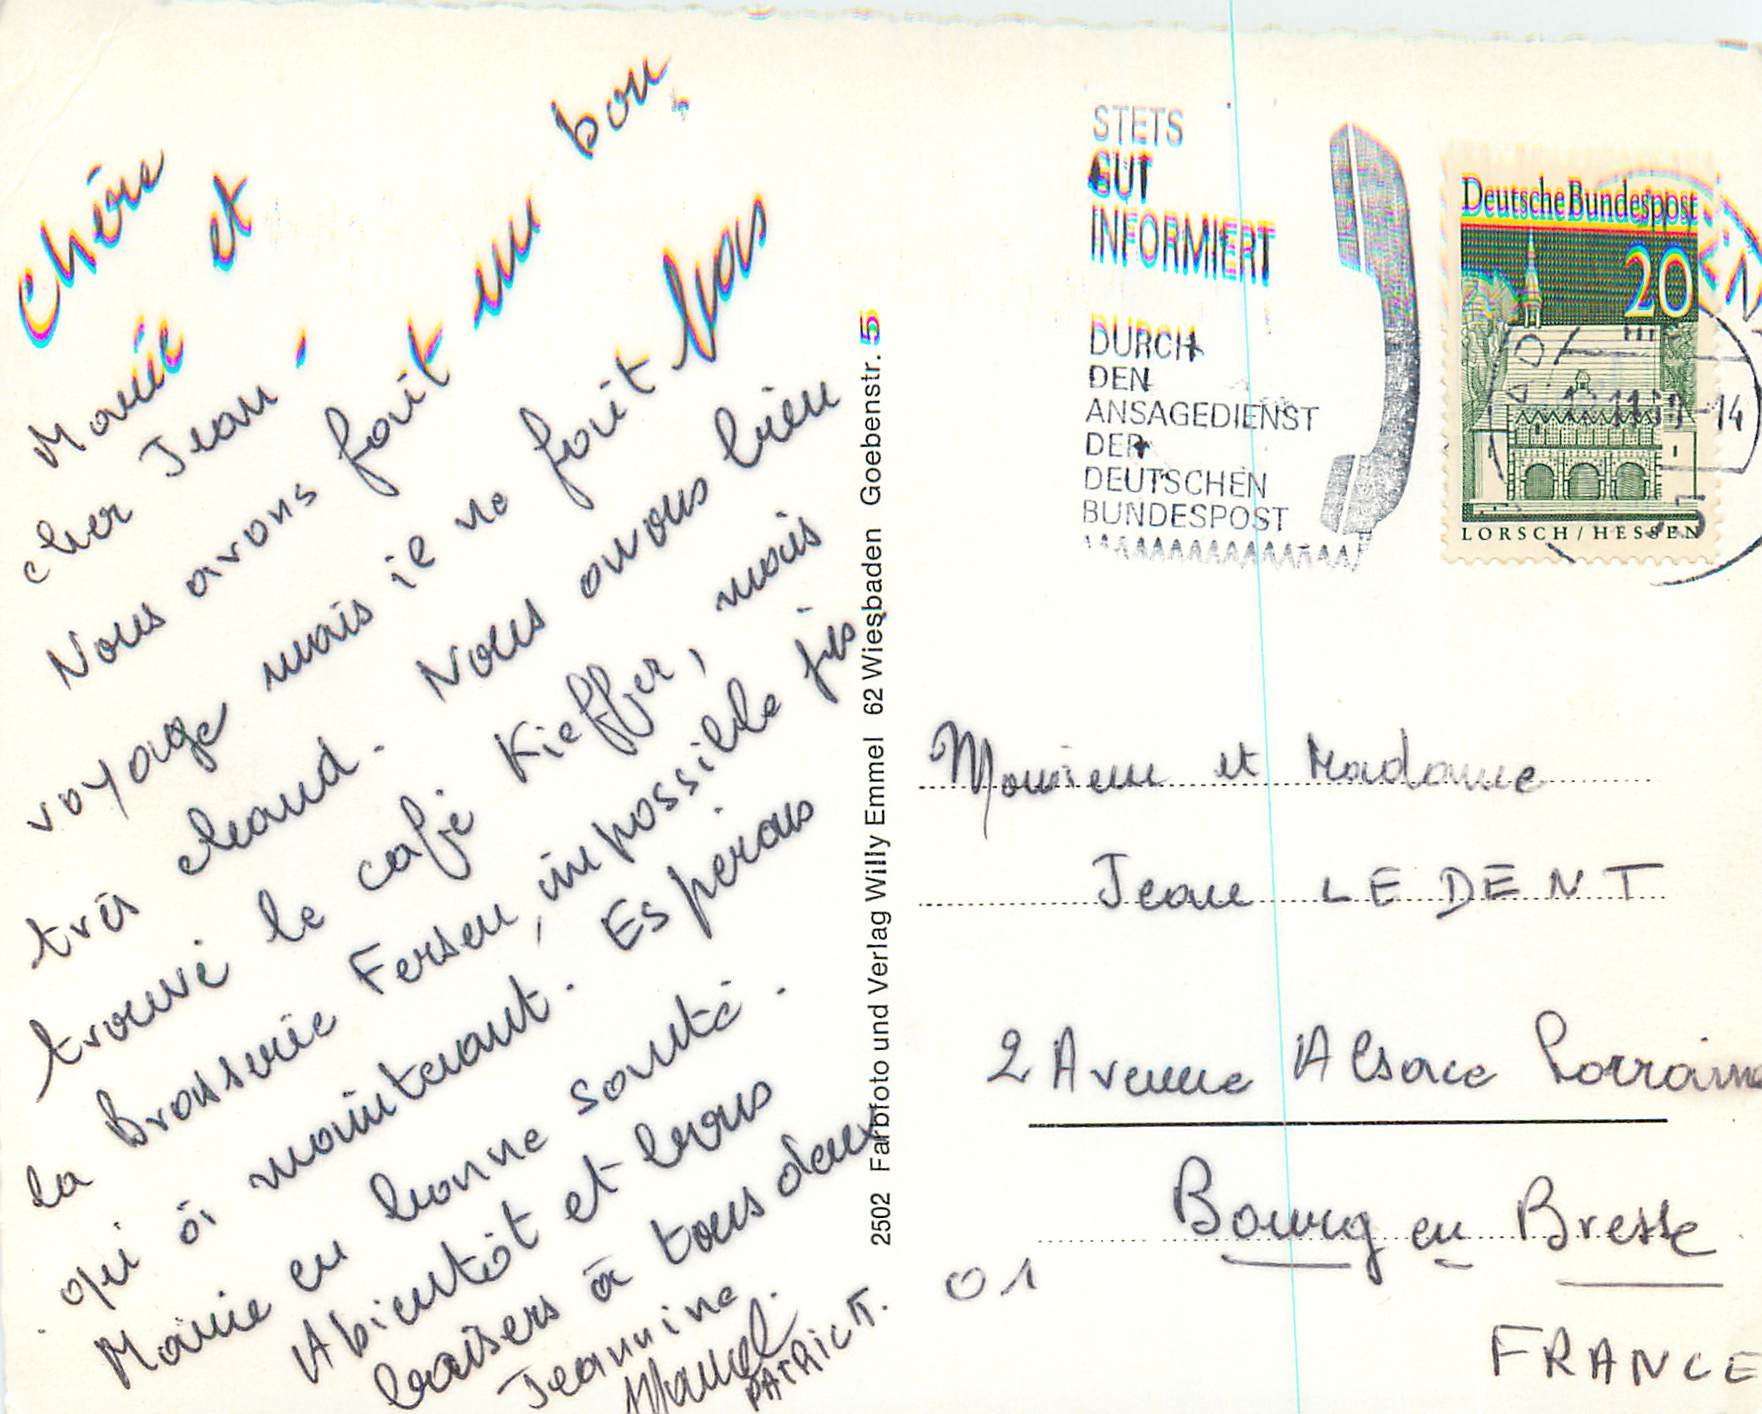 Chère
Marie et
cher Jean,
Nous avons fait un bon
voyage mais il ne fait pas
très chaud. Nous avons bien
trouvé le café Kieffer, mais
la Brasserie Fersen, impossible jus
qu'à maintenant. Espérons
Mamie en bonne santé.
A bientôt et bons
baisers à tous deux
Jeannine.
Marcel.
PATRICK.
2502 Farbfoto und Verlag Willy Emmel 62 Wiesbaden Goebenstr. 5
STETS
GUT
INFORMIERT
DURCH
DEN
ANSAGEDIENST
DER
DEUTSCHEN
BUNDESPOST
Deutsche Bundespost
20
LORSCH/HESSEN
-14
Monsieur et Madame
Jean LEDENT
2 Avenue Alsace Lorraine
Bourg en Bresse
01
FRANCE